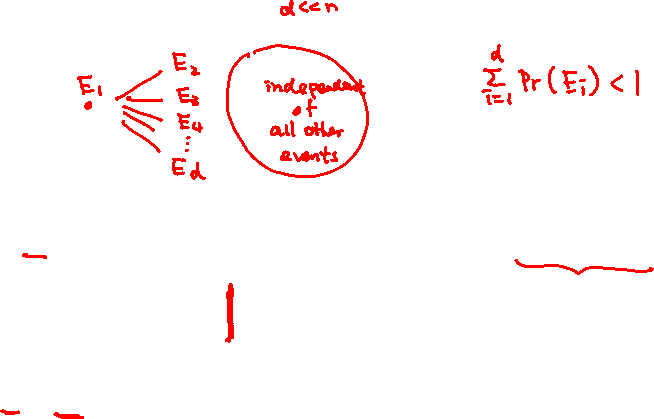 d<<n
E₁
E₂
E₃
E₄
...
E_d
independent
of
all other
events
\sum_{i=1}^{d} Pr(E_i) < 1